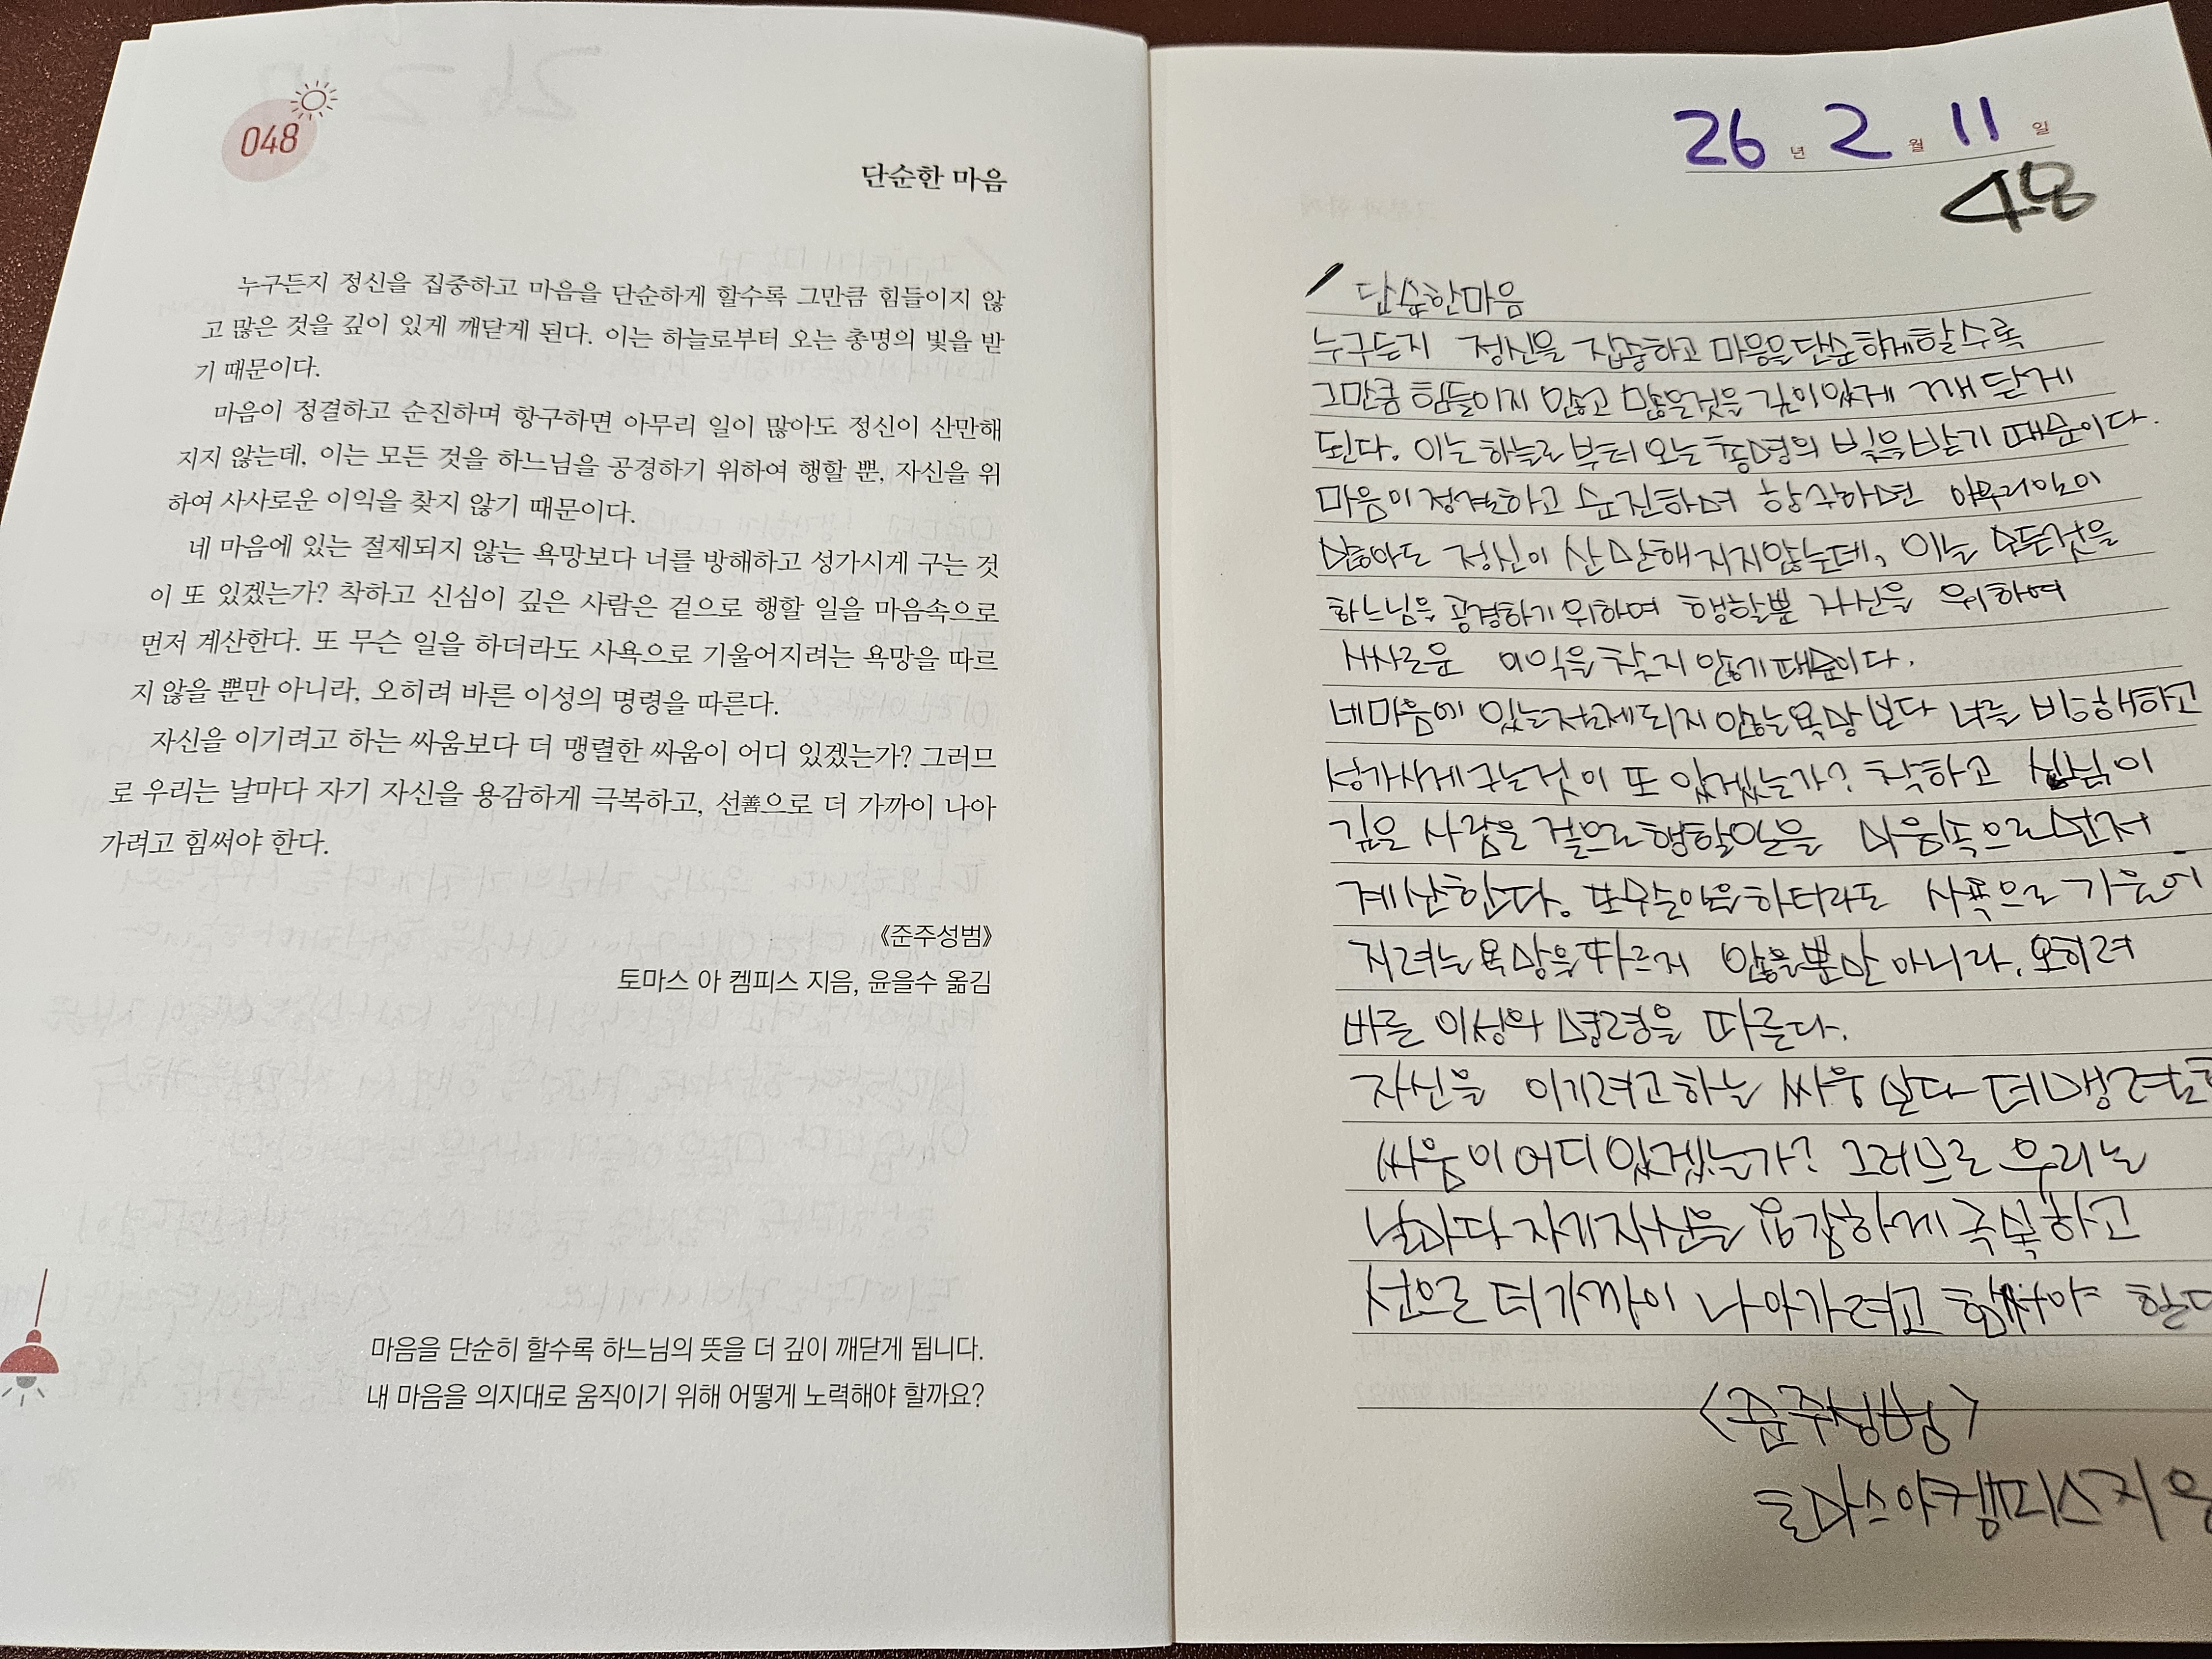 048
단순한 마음
누구든지 정신을 집중하고 마음을 단순하게 할수록 그만큼 힘들이지 않
고 많은 것을 깊이 있게 깨닫게 된다. 이는 하늘로부터 오는 총명의 빛을 받
기 때문이다.
마음이 정결하고 순진하며 항구하면 아무리 일이 많아도 정신이 산만해
지지 않는데, 이는 모든 것을 하느님을 공경하기 위하여 행할 뿐, 자신을 위
하여 사사로운 이익을 찾지 않기 때문이다.
네 마음에 있는 절제되지 않는 욕망보다 너를 방해하고 성가시게 구는 것
이 또 있겠는가? 착하고 신심이 깊은 사람은 겉으로 행할 일을 마음속으로
먼저 계산한다. 또 무슨 일을 하더라도 사욕으로 기울어지려는 욕망을 따르
지 않을 뿐만 아니라, 오히려 바른 이성의 명령을 따른다.
자신을 이기려고 하는 싸움보다 더 맹렬한 싸움이 어디 있겠는가? 그러므
로 우리는 날마다 자기 자신을 용감하게 극복하고, 선善으로 더 가까이 나아
가려고 힘써야 한다.
《준주성범》
토마스 아 켐피스 지음, 윤을수 옮김
마음을 단순히 할수록 하느님의 뜻을 더 깊이 깨닫게 됩니다.
내 마음을 의지대로 움직이기 위해 어떻게 노력해야 할까요?
26 년 2 월 11 일
48
단순한마음
누구든지 정신을 집중하고 마음을단순하게할수록
그만큼 힘들이지 않고 많은것을 깊이있게 깨닫게
된다. 이는하늘로부터 오는 총명의 빛을받기 때문이다.
마음이정결하고 순진하며 항구하면 아무리일이
많아도 정신이 산만해지지않는데, 이는 모든것을
하느님을 공경하기위하여 행할뿐 자신을 위하여
사사로운 이익을 찾지 않기때문이다.
네마음에 있는절제되지 않는욕망보다 너를 방해하고
성가시게구는것이 또 있겠는가? 착하고 신심이
깊은 사람은 겉으로행할일을 마음속으로먼저
계산한다. 또무슨일을하더라도 사욕으로 기울어
지려는욕망을따르지 않을뿐만 아니라, 오히려
바른 이성의 명령을 따른다.
자신을 이기려고하는 싸움보다 더맹렬한
싸움이어디있겠는가? 그러므로 우리는
날마다 자기자신을 용감하게 극복하고
선으로 더가까이 나아가려고 힘써야 한다
<준주성범>
토마스아켐피스지음